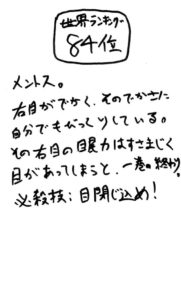 世界ランキング
84位
メントス。
右目がでかく、そのでかさに
自分でもびっくりしている。
その右目の目力はすさまじく
目があってしまうと、一巻の終わり。
必殺技：目閉じ込め！